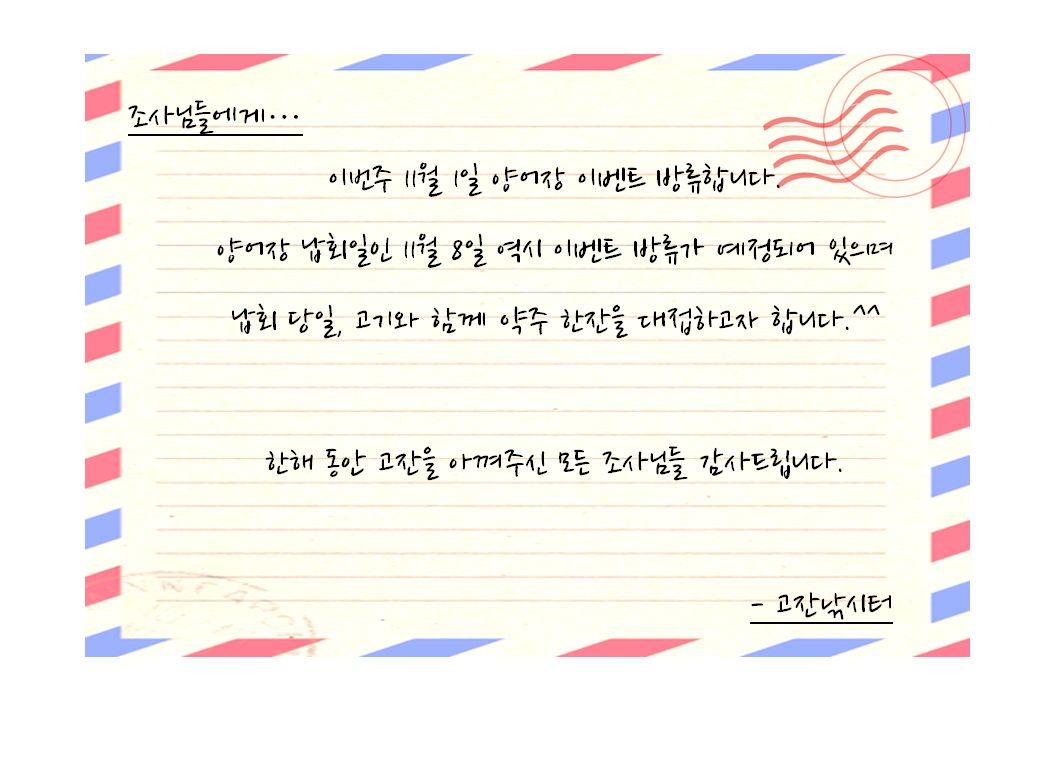 조사님들에게···
이번주 11월 1일 양어장 이벤트 방류합니다.
양어장 납회일인 11월 8일 역시 이벤트 방류가 예정되어 있으며
납회 당일, 고기와 함께 약주 한잔을 대접하고자 합니다.^^
한해 동안 고잔을 아껴주신 모든 조사님들 감사드립니다.
- 고잔낚시터